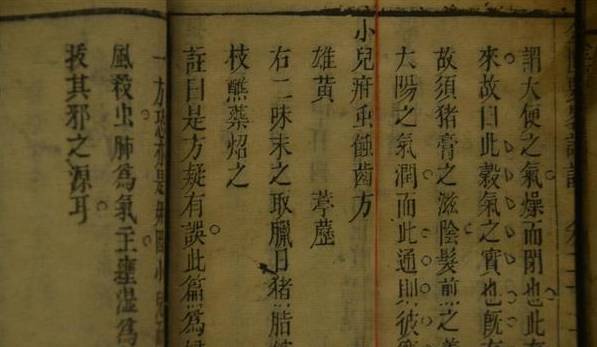 謂大便之氣燥而閉也此
來故曰此穀氣之實也旣有
故須猪膏之滋陰髮煎之
太陽之氣潤而此通則彼
小兒疳虫蝕齒方
雄黃 葶藶
右二味末之取臘日猪脂
枝點藥烙之
註曰是方疑有誤此篇爲
一方
風殺虫肺爲氣主瘧溫爲
拔其邪之源耳